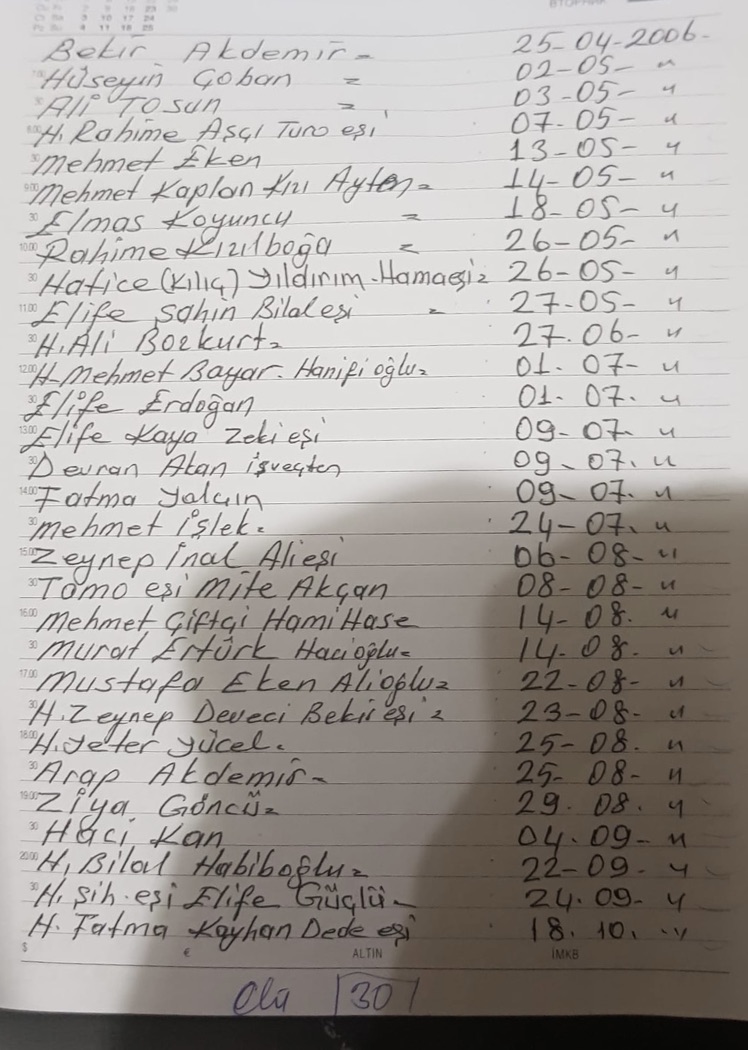 Bekir Akdemir = 25-04-2006-
Hüseyin Çoban = 02-05- "
Ali Tosun = 03-05- "
H. Rahime Aşçı Tuno eşi 07-05- "
Mehmet Eken 13-05- "
Mehmet Kaplan Kızı Ayten = 14-05- "
Elmas Koyuncu = 18-05- "
Rahime Kızılboğa = 26-05- "
Hatice (Kılıç) Yıldırım-Hamaeşi = 26-05- "
Elife Şahin Bilaleşi = 27-05- "
H. Ali Bozkurt = 27.06- "
H. Mehmet Bayar. Hanifi oğlu = 01.07- "
Elife Erdoğan 01.07. "
Elife Kaya Zeki eşi 09-07- "
Devran Akan isveçten 09-07. "
Fatma Yalçın 09-07. "
Mehmet İşlek = 24-07. "
Zeynep İnal Alieşi 06-08- "
Tamo eşi Mife Akçan 08-08- "
Mehmet Çiftçi Hami Hase 14-08. "
Murat Ertürk Hacioğlu = 14-08. "
Mustafa Eken Alioğlu = 22-08- "
H. Zeynep Deveci Bekireşi = 23-08- "
H. Yeter Yücel. 25-08. "
Arap Akdemir = 25-08- "
Ziya Göncü = 29.08. "
Haci Kan 04.09- "
H. Bilal Habiboğlu = 22-09. "
H. Şıh. eşi Elife Güçlü = 24.09- "
H. Fatma Kayhan Dede eşi 18.10. "
$ € ALTIN İMKB
Ölü 30